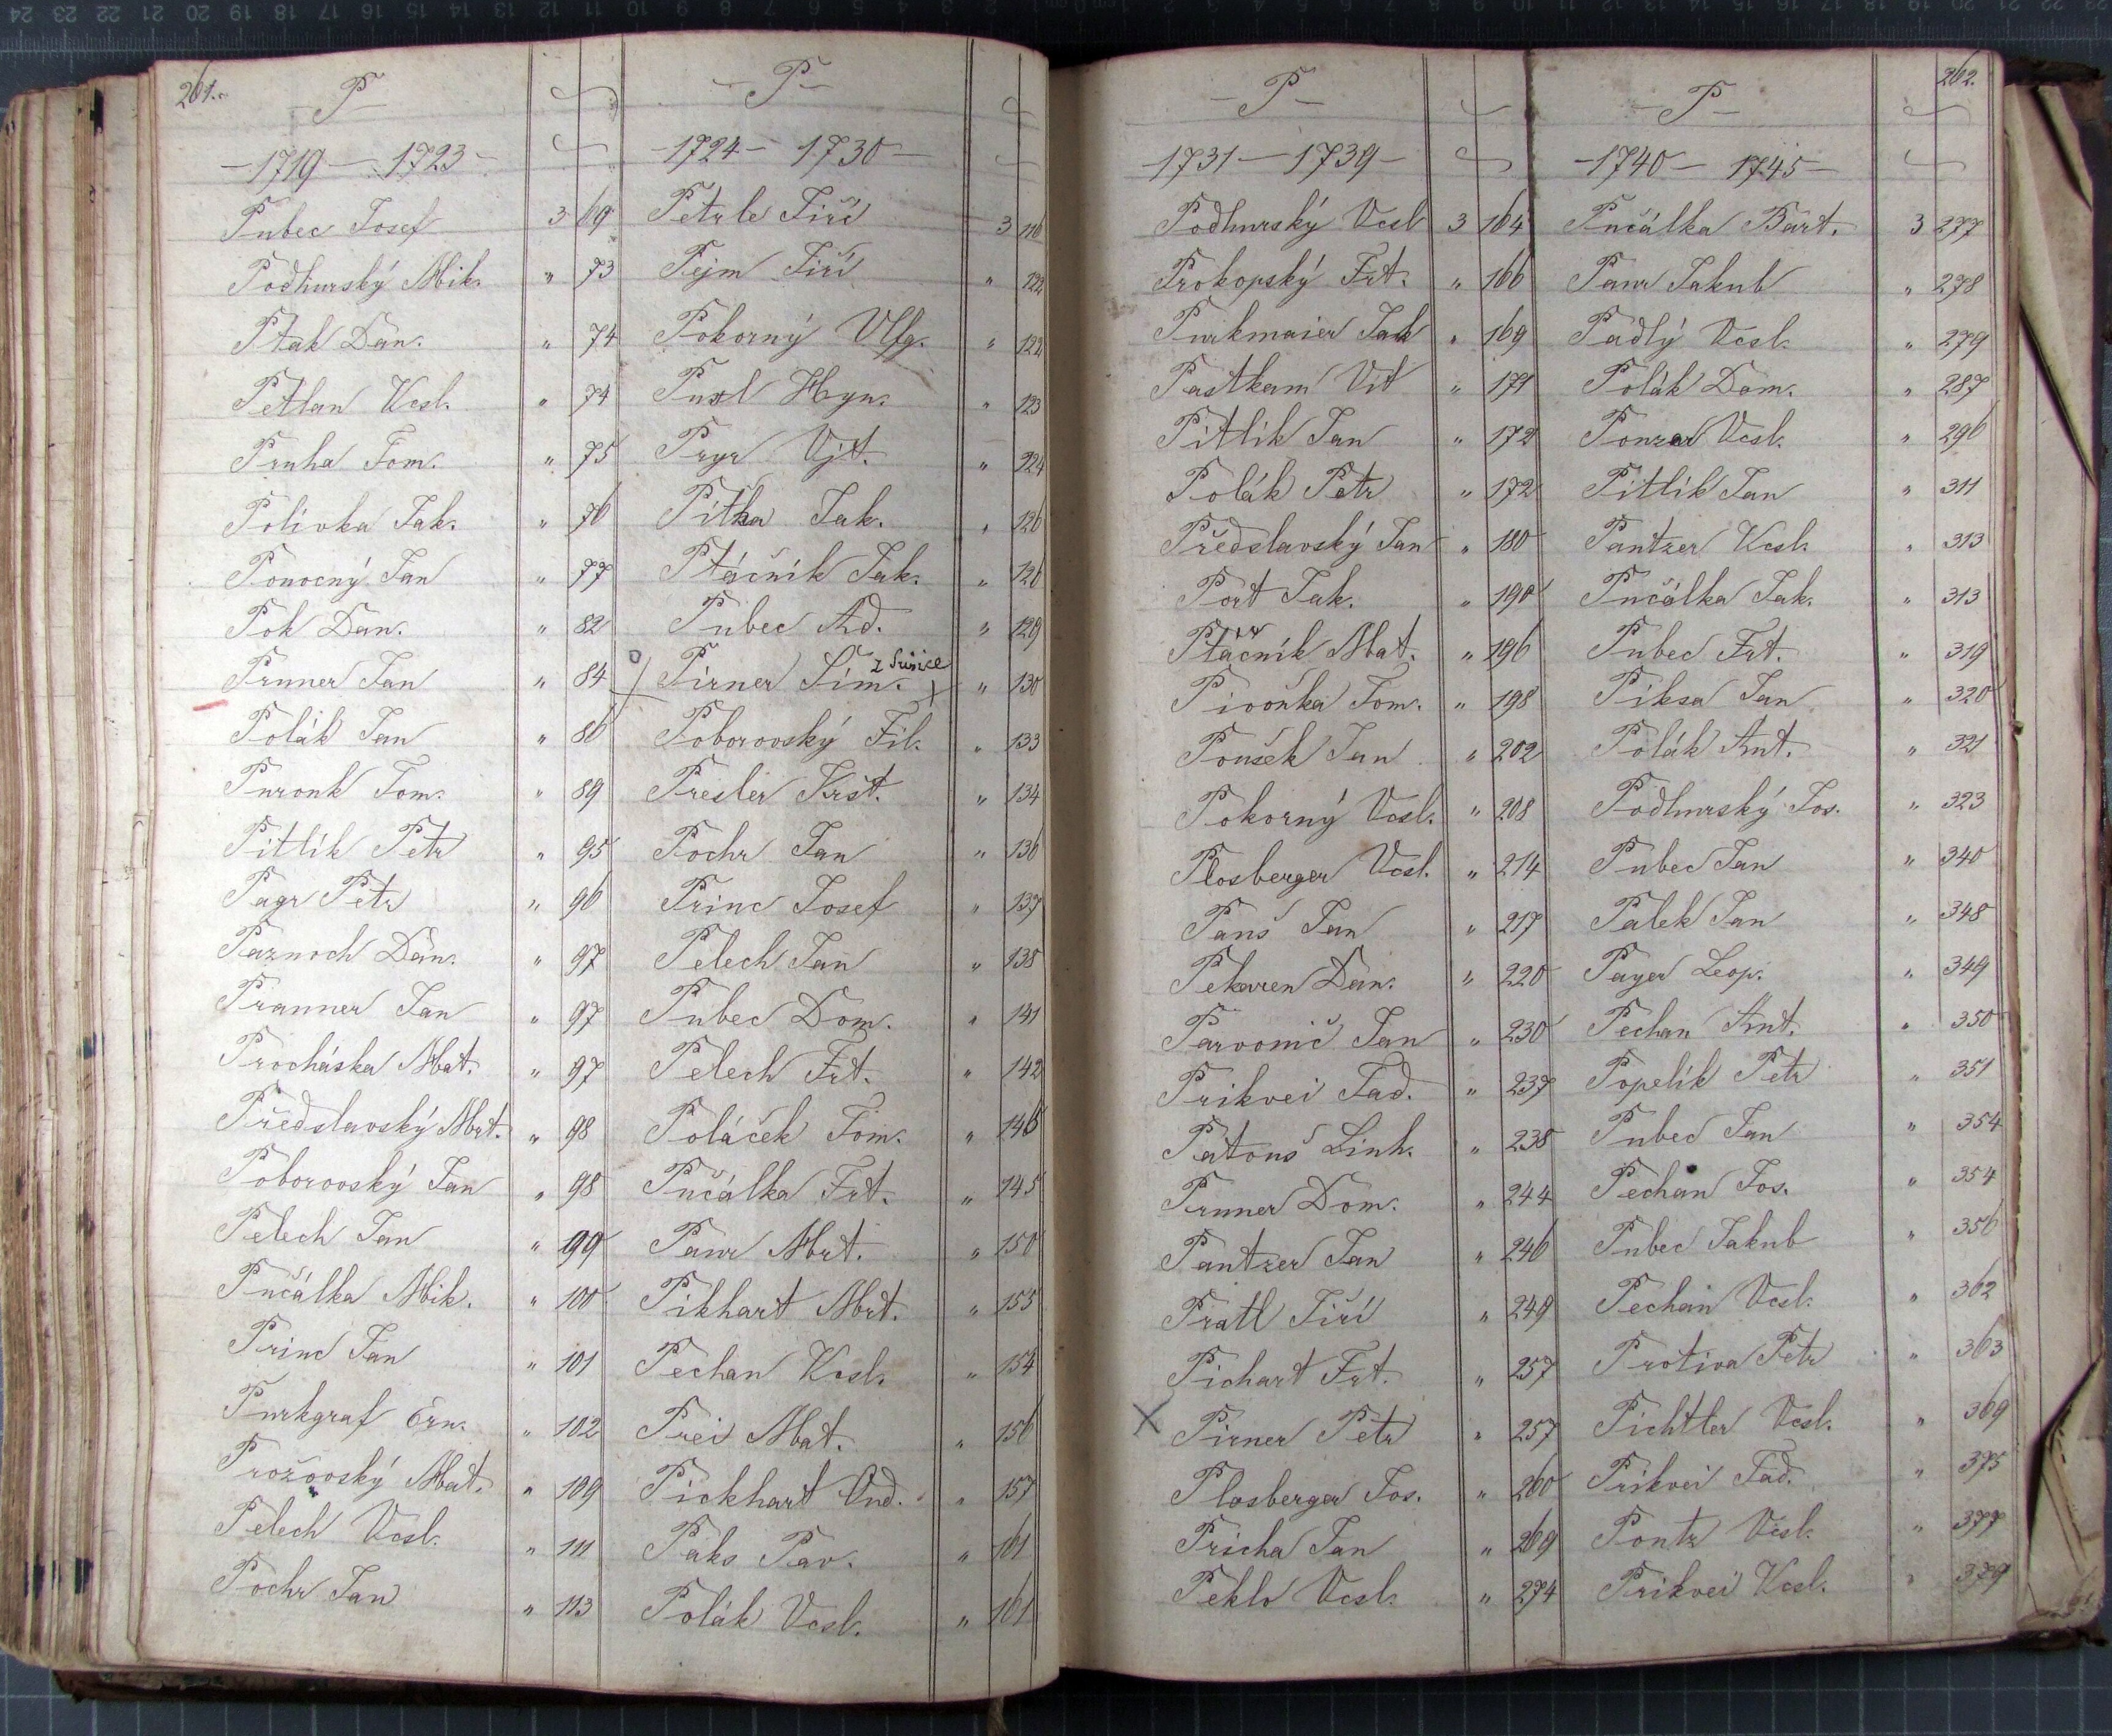 261.
P
1719 - 1723
Pubec Josef 3 69
Podhurský Mik. " 73
Pták Dan. " 74
Petlan Vcsl. " 74
Pruha Tom. " 75
Polívka Jak. " 76
Ponocný Jan " 77
Pok Dan. " 82
Prunner Jan " 84
Polák Jan " 86
Puronk Tom. " 89
Pitlík Petr " 95
Pagr Petr " 96
Paznoch Dan. " 97
Pranner Jan " 97
Procháska Mat. " 97
Předslavský Mrt. " 98
Poborovský Jan " 98
Pelech Jan " 99
Pučálka Mik. " 100
Princ Jan " 101
Purkgraf Ern. " 102
Prožovský Mat. " 109
Pelech Vcsl. " 111
Pochr Jan " 113
P
1724 - 1730
Petrle Jiří 3 116
Pejm Jiří " 122
Pokorný Vlfg. " 122
Puxl Hyn. " 123
Pryr Vjt. " 124
Pitka Jak. " 126
Ptáčník Jak. " 126
Pubec Ad. " 129
Pirner Šim. z Sušice " 130
Poborovský Fil. " 133
Presler Krst. " 134
Pochr Jan " 136
Princ Josef " 137
Pelech Jan " 138
Pubec Dom. " 141
Pelech Frt. " 142
Poláček Tom. " 146
Pučálka Frt. " 145
Paur Mrt. " 150
Pikhart Mrt. " 155
Pechan Vcsl. " 154
Prei Mat. " 156
Pickhart Ond. " 157
Paks Pav. " 161
Polák Vcsl. " 161
P
1731 - 1739
Podhurský Vcsl 3 164
Prokopský Frt. " 166
Purkmaier Jak " 169
Pastkam Vit " 171
Pitlík Jan " 172
Polák Petr " 172
Předslavský Jan " 180
Port Jak. " 190
Ptáčník Mat. " 196
Pivoňka Tom. " 198
Poušek Jan " 202
Pokorný Vcsl. " 208
Plosberger Vcsl. " 214
Pauš Jan " 217
Pekaren Dan. " 220
Parvonič Jan " 230
Prikvei Tad. " 237
Patouš Linh. " 238
Prunner Dom. " 244
Pantzer Jan " 246
Pratl Jiří " 249
Pichart Frt. " 257
X Pirner Petr " 257
Plosberger Jos. " 260
Pricha Jan " 269
Peklo Vcsl. " 274
262.
P
1740 - 1745
Pučálka Bart. 3 277
Paur Jakub " 278
Padlý Vcsl. " 279
Polák Dom. " 287
Ponzar Vcsl. " 296
Pitlík Jan " 311
Pantzer Vcsl. " 313
Pučálka Jak. " 313
Pubec Frt. " 319
Piksa Jan " 320
Polák Ant. " 321
Podhurský Jos. " 323
Pubec Jan " 340
Palek Jan " 348
Payer Leop. " 349
Pechan Ant. " 350
Popelík Petr " 351
Pubec Jan " 354
Pechan Jos. " 354
Pubec Jakub " 356
Pechan Vcsl. " 362
Protiva Petr " 363
Pichtler Vcsl. " 369
Prikvei Tad. " 375
Pontz Vcsl. " 377
Prikvei Vcsl. " 379